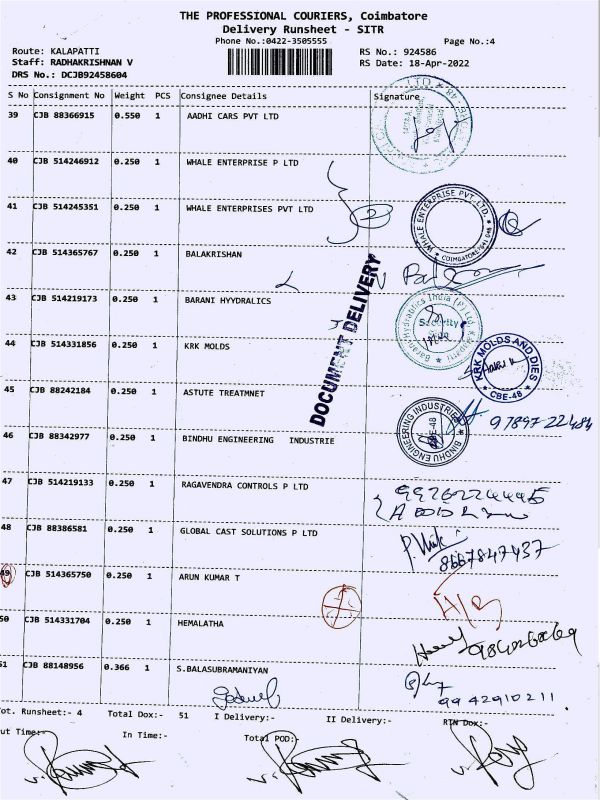 THE PROFESSIONAL COURIERS, Coimbatore
Delivery Runsheet - SITR
Phone No.:0422-3505555 Page No.:4
Route: KALAPATTI RS No.: 924586
Staff: RADHAKRISHNAN V RS Date: 18-Apr-2022
DRS No.: DCJB92458604
S No Consignment No Weight PCS Consignee Details Signature
39 CJB 88366915 0.550 1 AADHI CARS PVT LTD
40 CJB 514246912 0.250 1 WHALE ENTERPRISE P LTD
41 CJB 514245351 0.250 1 WHALE ENTERPRISES PVT LTD
2
WHALE ENTERPRISE PVT. LTD.
42 CJB 514365767 0.250 1 BALAKRISHAN
43 CJB 514219173 0.250 1 BARANI HYYDRALICS
Barani Hydraulics India (P) Ltd.
Security
DOCUMENT DELIVERY
44 CJB 514331856 0.250 1 KRK MOLDS
KRK MOLDS AND DIES
CBE-48
45 CJB 88242184 0.250 1 ASTUTE TREATMNET
97897 22484
46 CJB 88342977 0.250 1 BINDHU ENGINEERING INDUSTRIE
BINDHU ENGINEERING INDUSTRIES
CBE-48
47 CJB 514219133 0.250 1 RAGAVENDRA CONTROLS P LTD
48 CJB 88386581 0.250 1 GLOBAL CAST SOLUTIONS P LTD
8667847437
49 CJB 514365750 0.250 1 ARUN KUMAR T
50 CJB 514331704 0.250 1 HEMALATHA
51 CJB 88148956 0.366 1 S.BALASUBRAMANIYAN
9942910211
Tot. Runsheet:- 4 Total Dox:- 51 I Delivery:- II Delivery:- RTN Dox:-
Out Time:- In Time:- Total POD:-